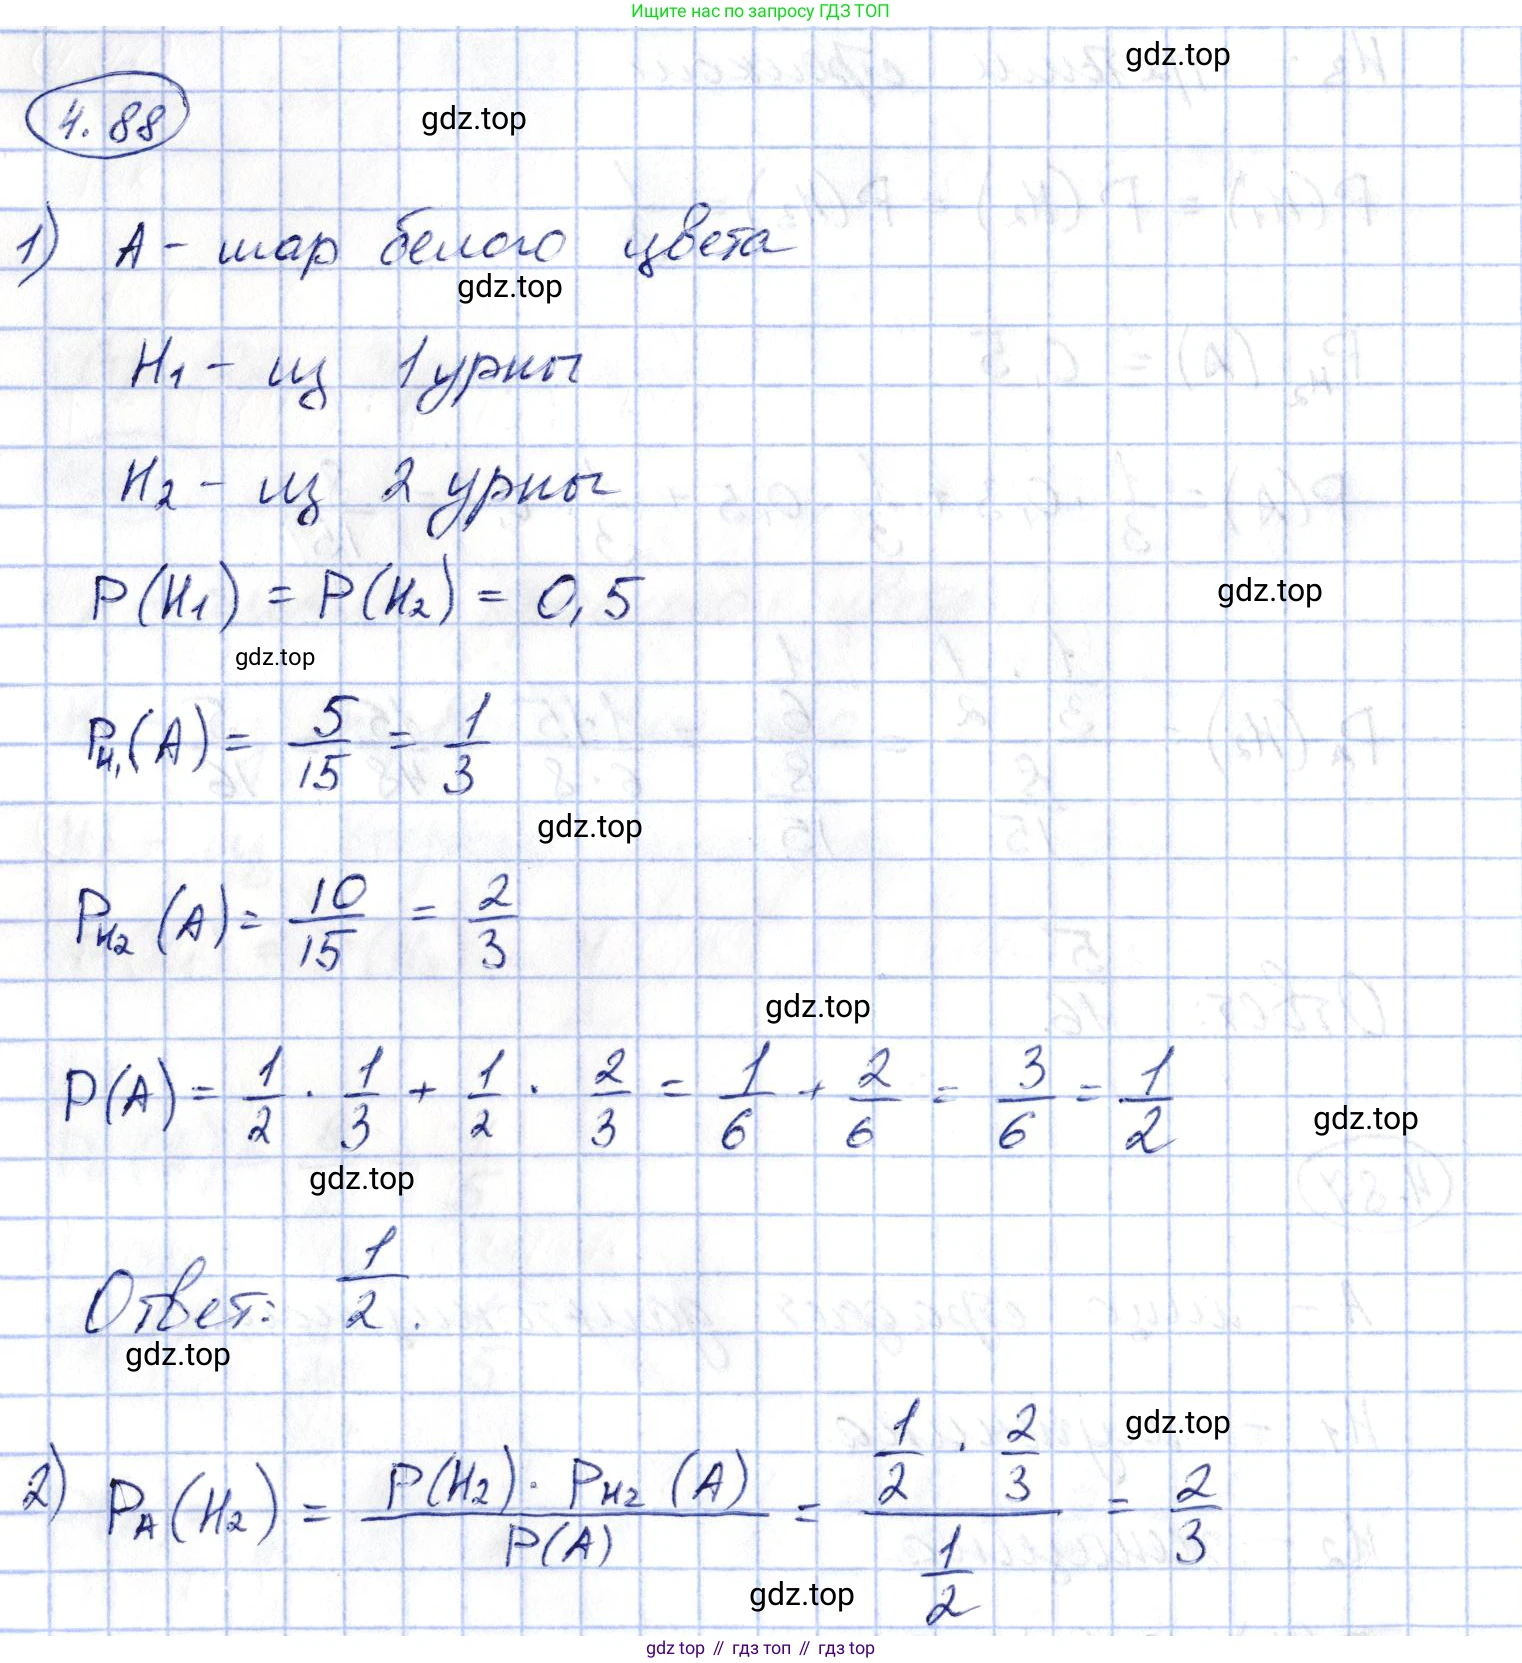 Ищите нас по запросу ГДЗ ТОП
gdz.top
4.88
gdz.top
1) A - шар белого цвета
gdz.top
H₁ - из 1 урны
H₂ - из 2 урны
P(H₁) = P(H₂) = 0,5
gdz.top
gdz.top
P_H₁(A) = 5/15 = 1/3
gdz.top
P_H₂(A) = 10/15 = 2/3
gdz.top
P(A) = 1/2 · 1/3 + 1/2 · 2/3 = 1/6 + 2/6 = 3/6 = 1/2
gdz.top
gdz.top
Ответ: 1/2.
gdz.top
gdz.top
2) P_A(H₂) = P(H₂) · P_H₂(A) / P(A) = (1/2 · 2/3) / (1/2) = 2/3
gdz.top
gdz top // гдз топ // гдз top